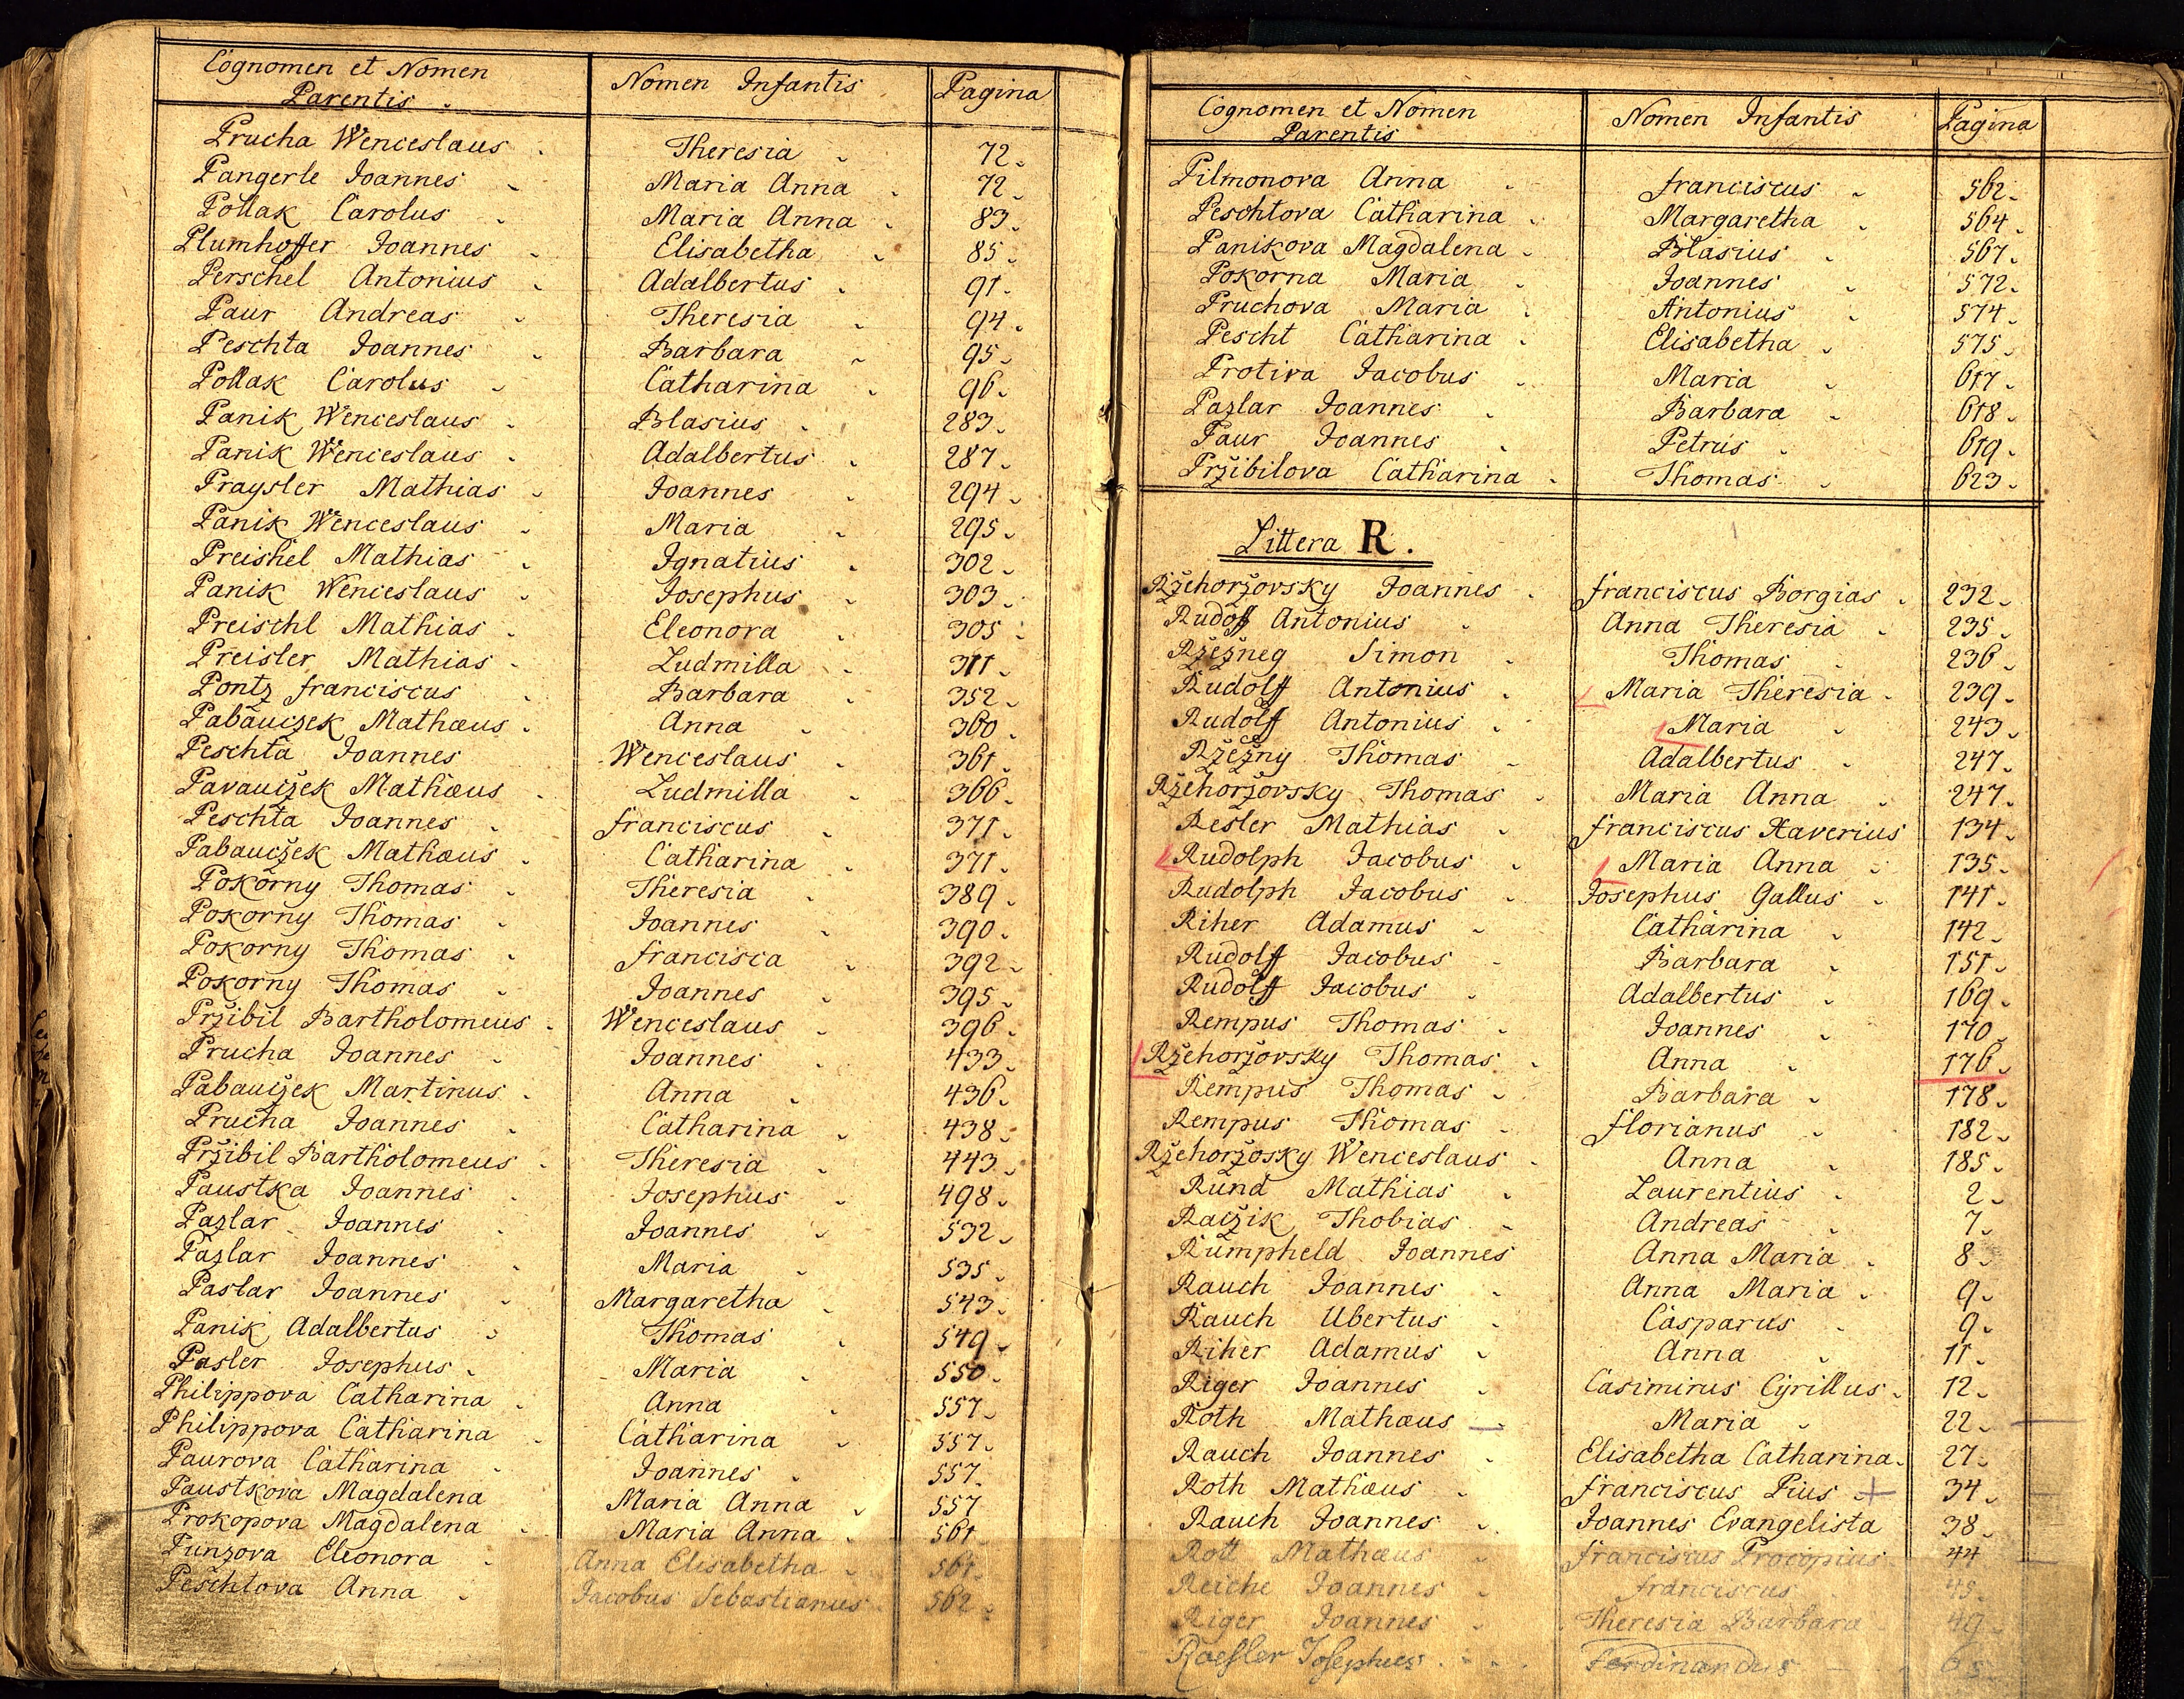 Cognomen et Nomen Parentis Nomen Infantis Pagina
Prucha Wenceslaus Theresia 72
Pangerle Joannes Maria Anna 72
Pollak Carolus Maria Anna 83
Plumhoffer Joannes Elisabetha 85
Perschel Antonius Adalbertus 91
Paur Andreas Theresia 94
Peschta Joannes Barbara 95
Pollak Carolus Catharina 96
Panik Wenceslaus Blasius 283
Panik Wenceslaus Adalbertus 287
Praysler Mathias Joannes 294
Panik Wenceslaus Maria 295
Preishel Mathias Ignatius 302
Panik Wenceslaus Josephus 303
Preischl Mathias Eleonora 305
Preisler Mathias Ludmilla 311
Pontz Franciscus Barbara 352
Pabauczek Mathæus Anna 360
Peschta Joannes Wenceslaus 361
Pavauczek Mathæus Ludmilla 366
Peschta Joannes Franciscus 371
Pabauczek Mathæus Catharina 371
Pokorny Thomas Theresia 389
Pokorny Thomas Joannes 390
Pokorny Thomas Francisca 392
Pokorny Thomas Joannes 395
Pržibil Bartholomeus Wenceslaus 396
Prucha Joannes Joannes 433
Pabauczek Martinus Anna 436
Prucha Joannes Catharina 438
Pržibil Bartholomeus Theresia 443
Paustka Joannes Josephus 498
Pazlar Joannes Joannes 532
Pazlar Joannes Maria 535
Paslar Joannes Margaretha 543
Panik Adalbertus Thomas 549
Pasler Josephus Maria 550
Philippova Catharina Anna 557
Philippova Catharina Catharina 557
Paurova Catharina Joannes 557
Paustkova Magdalena Maria Anna 557
Prokopova Magdalena Maria Anna 561
Punzova Eleonora Anna Elisabetha 561
Peschtova Anna Jacobus Sebastianus 562
Cognomen et Nomen Parentis Nomen Infantis Pagina
Pilmonova Anna Franciscus 562
Peschtova Catharina Margaretha 564
Panikova Magdalena Blasius 567
Pokorna Maria Joannes 572
Pruchova Maria Antonius 574
Pescht Catharina Elisabetha 575
Protiva Jacobus Maria 617
Pazlar Joannes Barbara 618
Paur Joannes Petrus 619
Pržibilova Catharina Thomas 623
Littera R.
Ržehoržovsky Joannes Franciscus Borgias 232
Rudoff Antonius Anna Theresia 235
Ržežneg Simon Thomas 236
Rudolff Antonius Maria Theresia 239
Rudolff Antonius Maria 243
Ržežny Thomas Adalbertus 247
Ržehoržovsky Thomas Maria Anna 247
Resler Mathias Franciscus Xaverius 134
Rudolph Jacobus Maria Anna 135
Rudolph Jacobus Josephus Gallus 141
Riher Adamus Catharina 142
Rudolff Jacobus Barbara 151
Rudolff Jacobus Adalbertus 169
Rempus Thomas Joannes 170
Ržehoržovsky Thomas Anna 176
Rempus Thomas Barbara 178
Rempus Thomas Florianus 182
Ržehoržosky Wenceslaus Anna 185
Rund Mathias Laurentius 2
Raczik Thobias Andreas 7
Rumpheld Joannes Anna Maria 8
Rauch Joannes Anna Maria 9
Rauch Ubertus Casparus 9
Riher Adamus Anna 11
Riger Joannes Casimirus Cyrillus 12
Roth Mathæus Maria 22
Rauch Joannes Elisabetha Catharina 27
Roth Mathæus Franciscus Pius 34
Rauch Joannes Joannes Evangelista 38
Rott Mathæus Franciscus Procopius 44
Reiche Joannes Franciscus 45
Riger Joannes Theresia Barbara 49
Roesler Josephus Ferdinandus 65